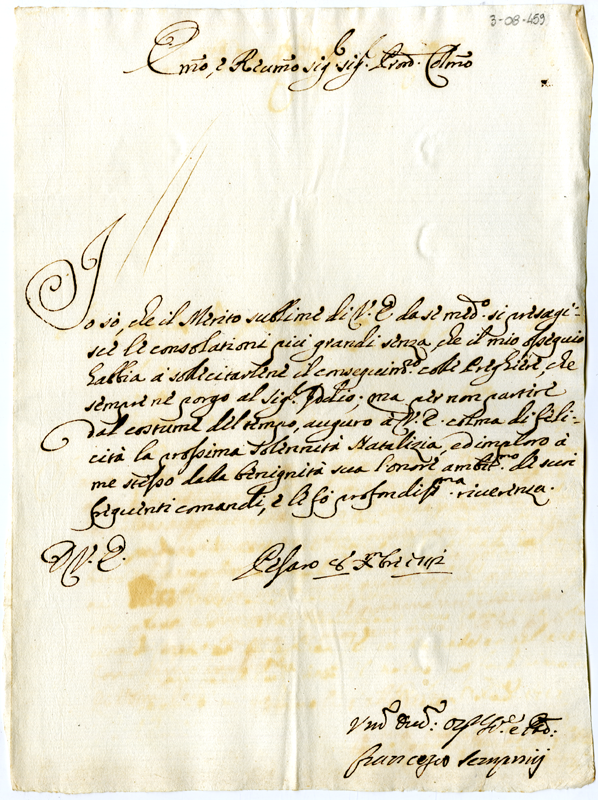 3-08-459
Emo, e Reumo sigr sigr Pron. Colmo
Io sò, che il Merito sublime di V. E. da se medo. si presagi-
sce le consolationi piu grandi senza, che il mio ossequio
habbia à sollicitarlene il conseguimto. colle Preghiere, che
sempre ne porgo al sigr. Iddio; ma per non partire
dal costume del tempo, auguro à V. E. colma di feli-
cità la prossima solennità Natalizia, ed imploro à
me stesso dalla benignità sua l'onore ambitmo. de suoi
frequenti comandi, e le fò profondissma. riuerenza.
D V. E.
Pesaro Xbre
Vmo Deuo: Se
Francesco